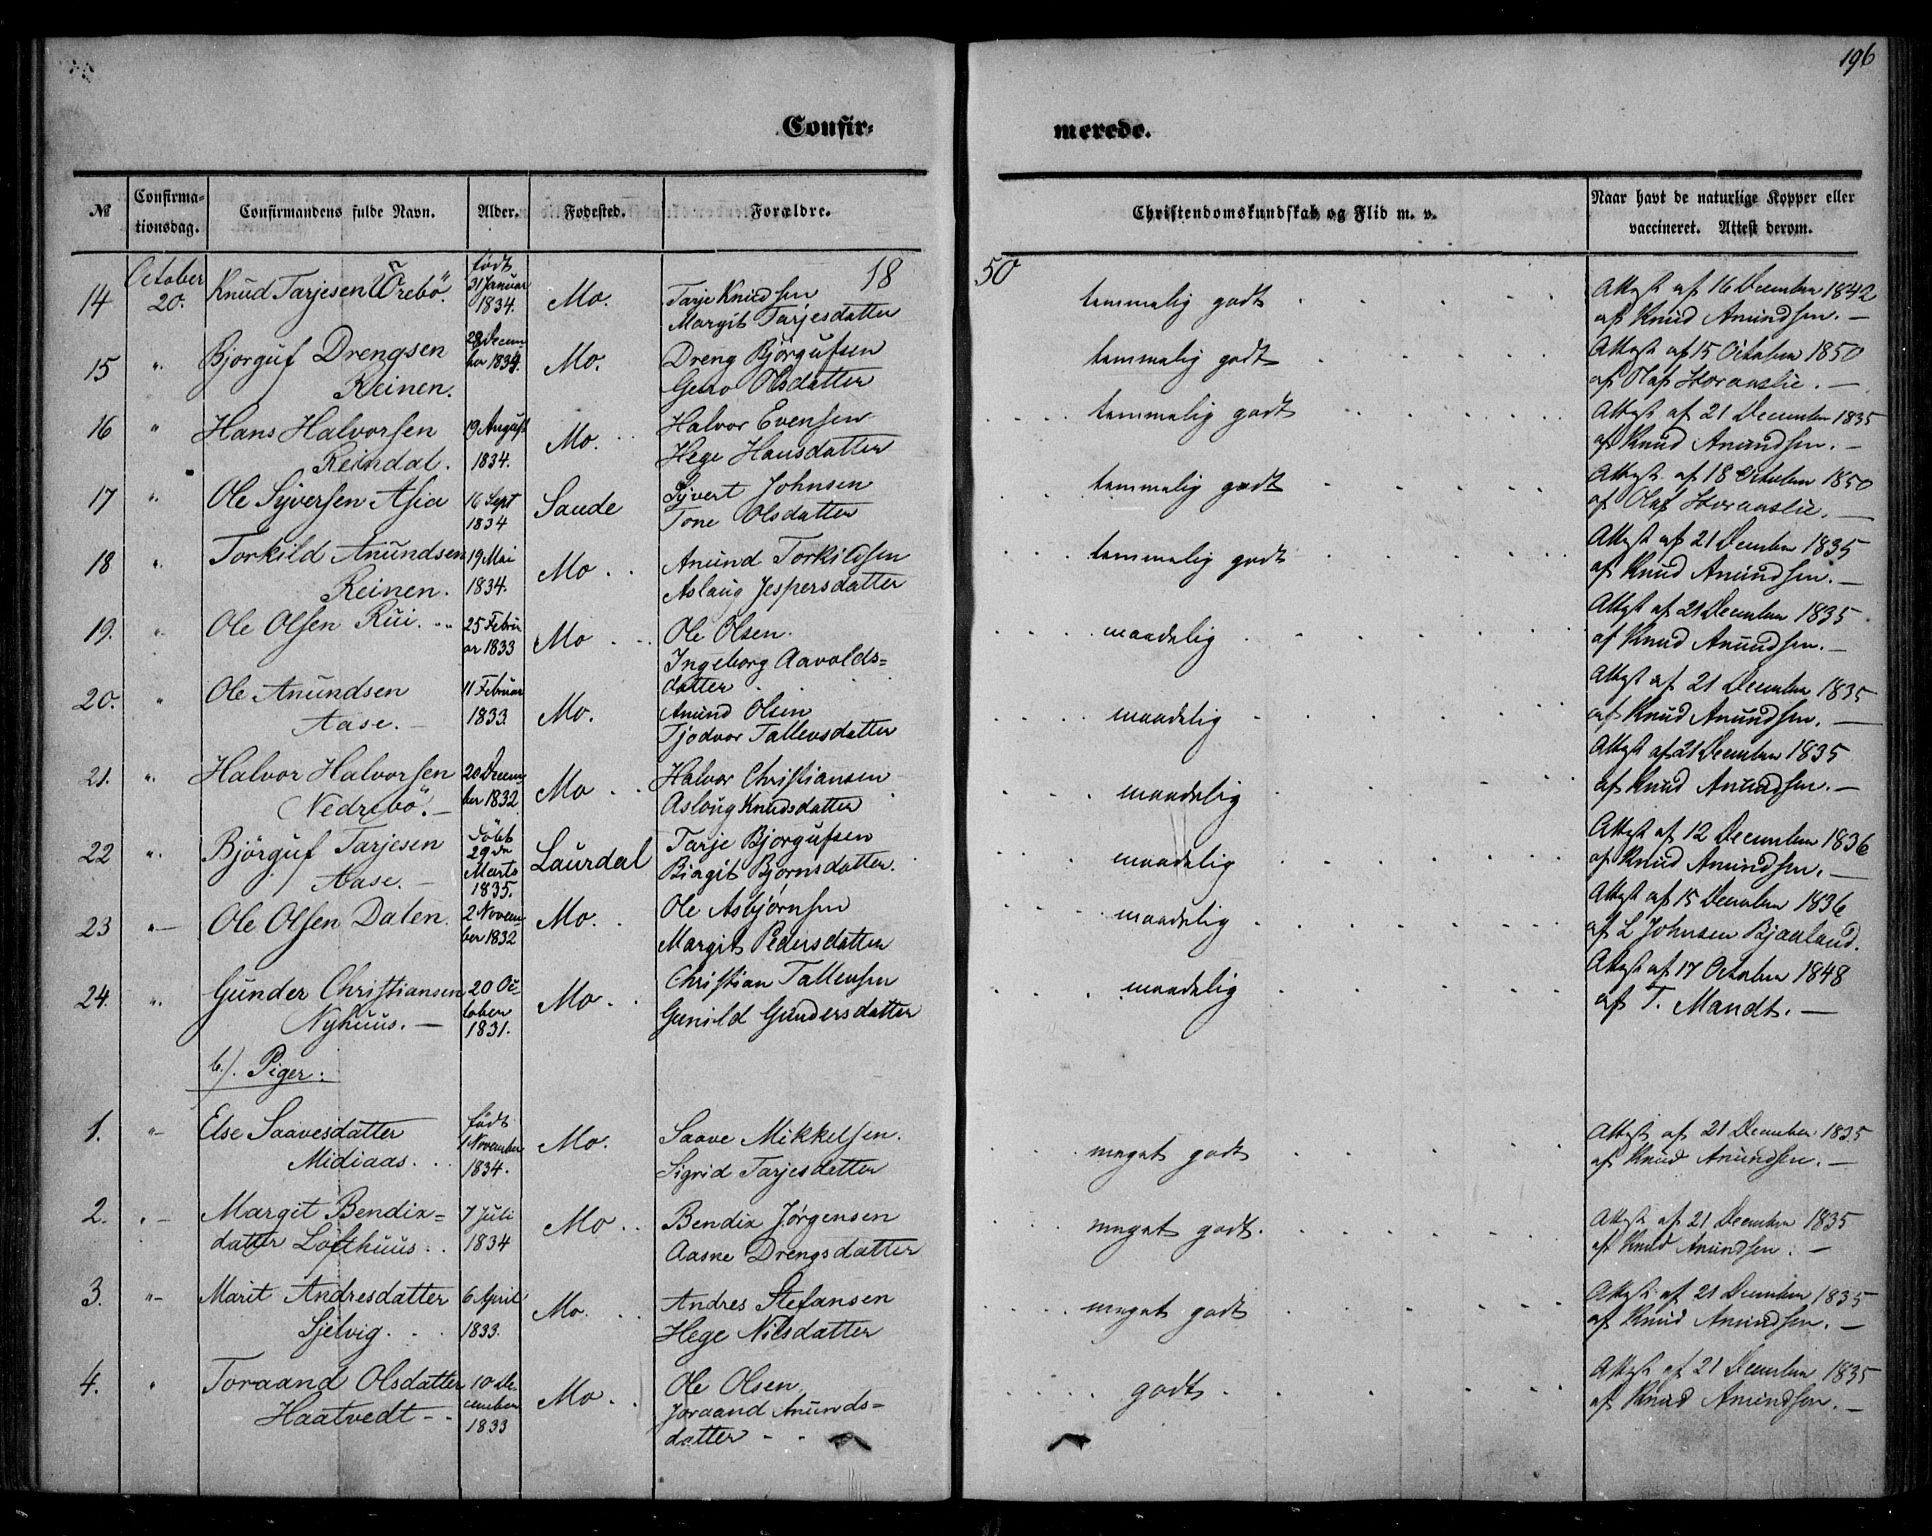 196
Confir-
merede.
№ Confirma-tionsdag. Confirmandens fulde Navn. Alder. Fødested. Forældre. Christendomskundskab og Flid m. v. Naar havt de naturlige Kopper eller vaccineret. Attest derom.
18 50
14 October 20. Knud Tarjesen Urebö. født 31 Januar 1834. Mo. Tarje Knudsen Margit Tarjesdatter temmelig godt Attest af 16 December 1842 af Knud Anundsen. —
15 " Bjorguf Drengsen Reinen. 28 December 1834. Mo. Dreng Bjørgufsen Gero Olsdatter temmelig godt Attest af 15 October 1850 af Olaf Horaaslie. —
16 " Hans Halvorsen Reindal. 19 August 1834. Mo. Halvor Evensen Hege Hansdatter temmelig godt Attest af 21 December 1835 af Knud Anundsen. —
17 " Ole Syversen Asia 16 Sept 1834 Saude Syvert Johnsen Tone Olsdatter temmelig godt Attest af 18 October 1850 af Olaf Horaaslie. —
18 " Torkild Anundsen Reinen. 19 Mai 1834. Mo Anund Torkildsen Aslaug Jespersdatter temmelig godt Attest af 21 December 1835 af Knud Anundsen. —
19. " Ole Olsen Rui. 25 Februar 1833 Mo Ole Olsen. Ingeborg Aavolds=datter maadelig Attest af 21 December 1835 af Knud Anundsen. —
20. " Ole Anundsen Aase. — 11 Februar 1833. Mo. Anund Olsen Tjodvor Tallevsdatter maadelig Attest af 21 December 1835 af Knud Anundsen. —
21. " Halvor Halvorsen Nedrebö. — 20 December 1832 Mo Halvor Christiansen Aslaug Knudsdatter maadelig Attest af 21 December 1835 af Knud Anundsen. —
22 " Bjørguf Tarjesen Aase. — Døbt 29de Marts 1835. Laurdal Tarje Bjorgufsen Birgit Bjornsdatter. maadelig Attest af 12 December 1836 af Knud Anundsen. —
23 " — Ole Olsen Dalen. 2 November 1832 Mo. Ole Asbjørnsen Margit Pedersdatter maadelig Attest af 15 December 1836 af L Johnsen Bjaaland.
24. " Gunder Christiansen Nyhuus. — 20 October 1831. Mo Christian Tallevsen Gunild Gundersdatter maadelig Attest af 17 October 1848 af T. Mandt. —
b.). Piger:
1. " — Else Saavesdatter Midiaas. født 1 November 1834. Mo. Saave Mikkelsen. Sigrid Tarjesdatter meget godt Attest af 21 December 1835 af Knud Anundsen. —
2. " — Margit Bendix=datter Lofthuus. 7 Juli 1834 Mo Bendix Jørgensen Aasne Drengsdatter meget godt. Attest af 21 December 1835 af Knud Anundsen. —
3. " — Marit Andresdatter Sjelvig. 6 April 1833. Mo. Andres Stefansen Hege Nilsdatter meget godt Attest af 21 December 1835 af Knud Anundsen. —
4. " Toraand Olsdatter Haatvedt — 10 December 1833 Mo. Ole Olsen Joraand Anunds=datter godt. Attest af 21 December 1835 af Knud Anundsen. —